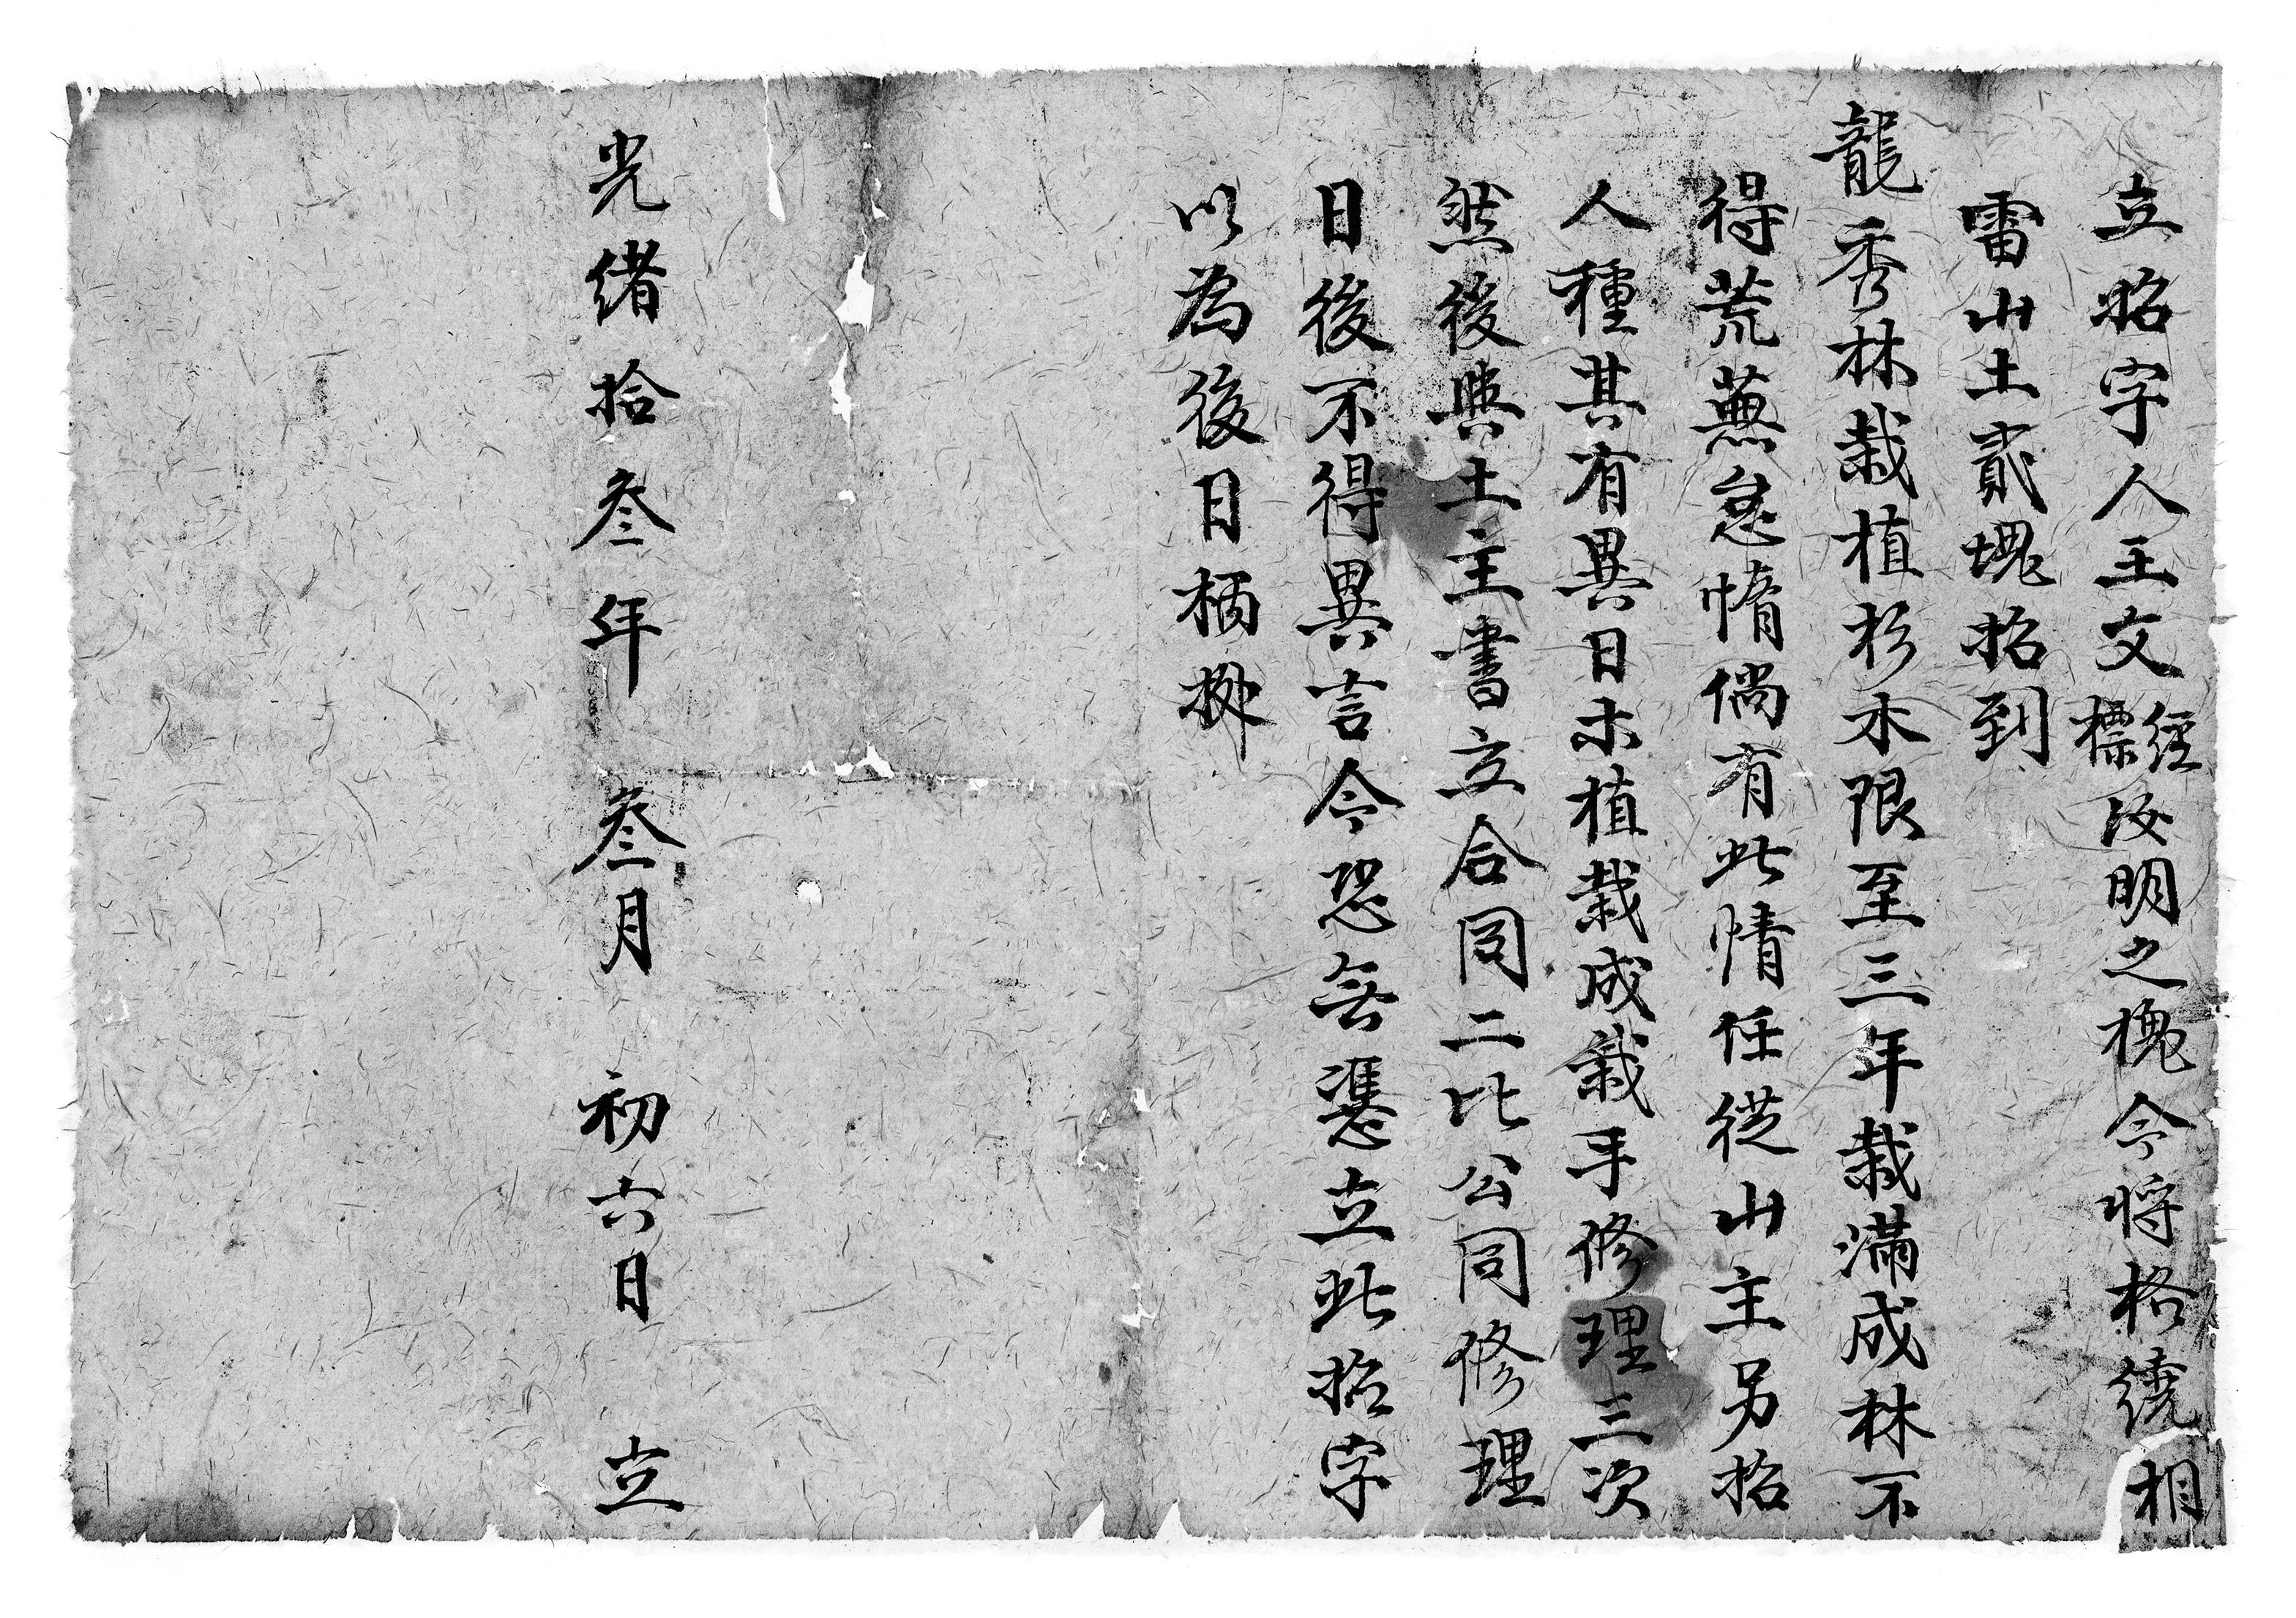 立招字人王文經標汝明之槐今將格繞相
雷山土貳塊招到
龍秀林栽植杉木限至三年栽滿成林不
得荒蕪怠惰倘有此情任從山主另招
人種其有異日木植栽成栽手修理三次
然後與土主書立合同二比公同修理
日後不得異言今恐無憑立此招字
以為後日柄據
光緒拾叁年叁月初六日立